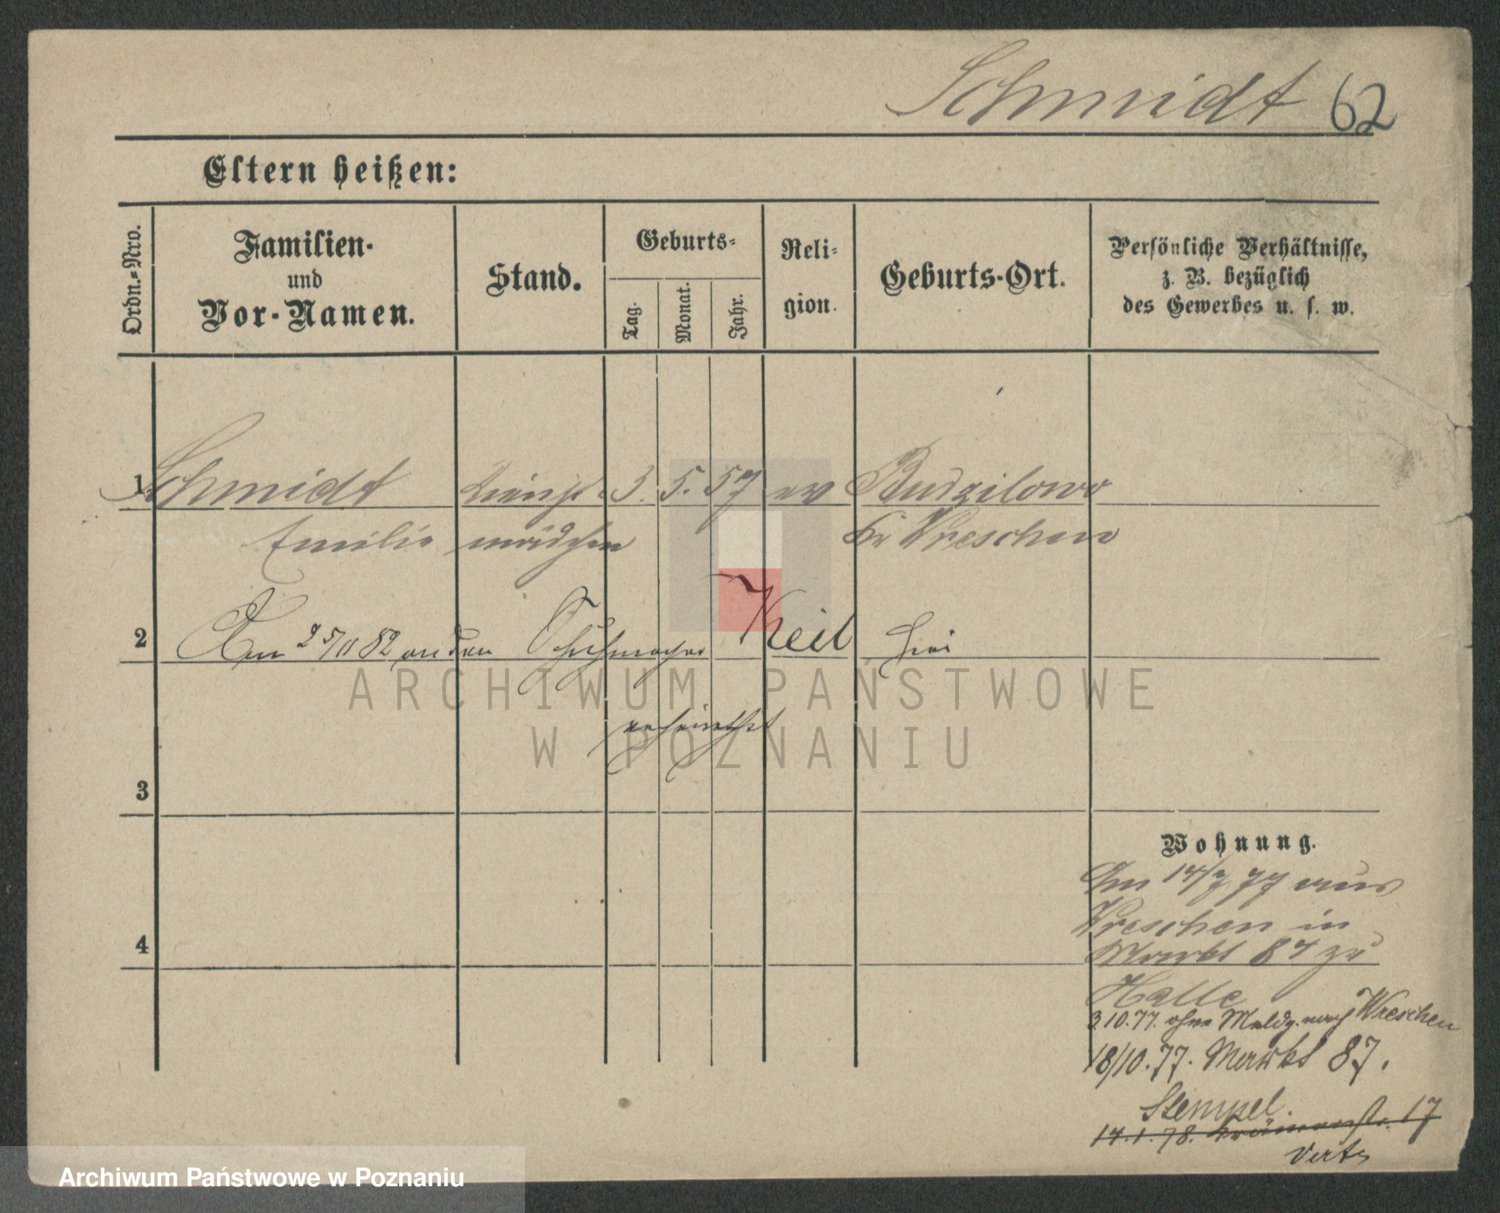 Schmidt 62
Eltern heißen:
Ordn.-Nro.
Familien-
und
Vor-Namen.
Stand.
Geburts-
Tag.
Monat.
Jahr.
Reli-
gion.
Geburts-Ort.
Persönliche Verhältnisse,
z. B. bezüglich
des Gewerbes u. s. w.
1 Schmidt Dienst 3. 5. 57 ev Budzilowo
Emilie mädchen Kr Wreschen
2 Am 25/11 82 an den Schuhmacher Keil hier
verheirathet
3
4
Wohnung.
Am 14/7 77 aus
Wreschen in
Markt 87 zu
Halle
3 10.77. ohne Meldg. nach Wreschen
18/10.77. Markt 87.
Stempel.
14.1.78. 17
Verte
ARCHIWUM PAŃSTWOWE
W POZNANIU
Archiwum Państwowe w Poznaniu